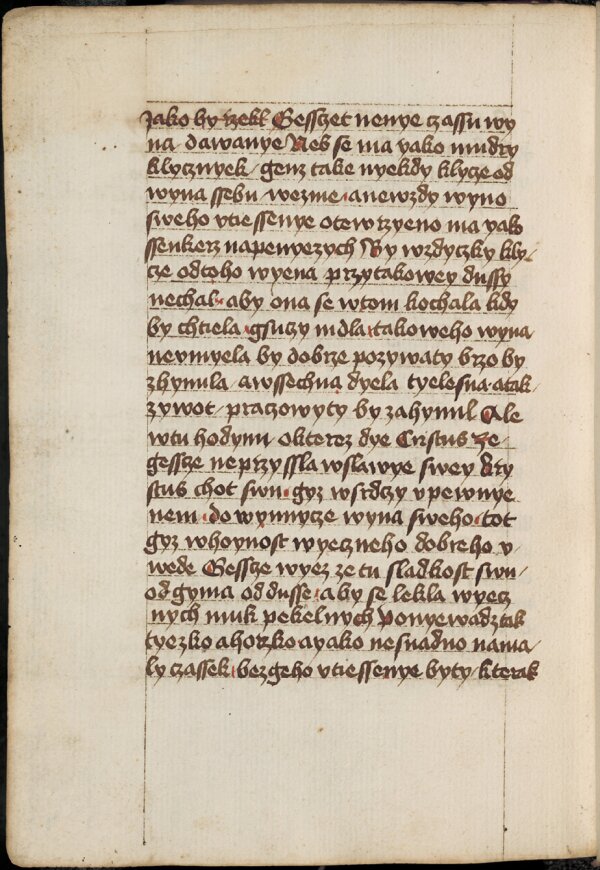 Jako by rzekl Gessczet nenye czassu wy
na dawanye Neb se ma yako mudry
klycznyek / genz take nyekdy klycze od
wyna ssebu wezme · anewzdy wyno
sweho vtiessenye otewrzyeno ma yako
ssenkerz napenyezych By wzdyczky kly/
cze odtoho wyena przytakowey dussy
nechal · aby ona se wtom kochala kdy
by chtiela · gsuczy mdla takoweho wyna
neumyela by dobrze pozywaty brzo by
zhynula / awssechna dyela tyelesna · atak /
zywot / praczowyty by zahynul Ale
wtu hodynu okterez dye Cristus ze /
gessze neprzyssla wslawye swey kry
stus chot swu · gyz wsrdczy vpewnye
nem · do wynnycze wyna sweho · tot
gyz whoynost wyeczneho dobreho v /
wede Gessze wyez ze tu sladkost swu /
odgyma oddusse · aby se lekla wyecz
nych muk pekelnych Ponyewadz tak
tyezko ahorzko ayako nesnadno nama /
ly czassek · bezgeho vtiessenye byty / kterak